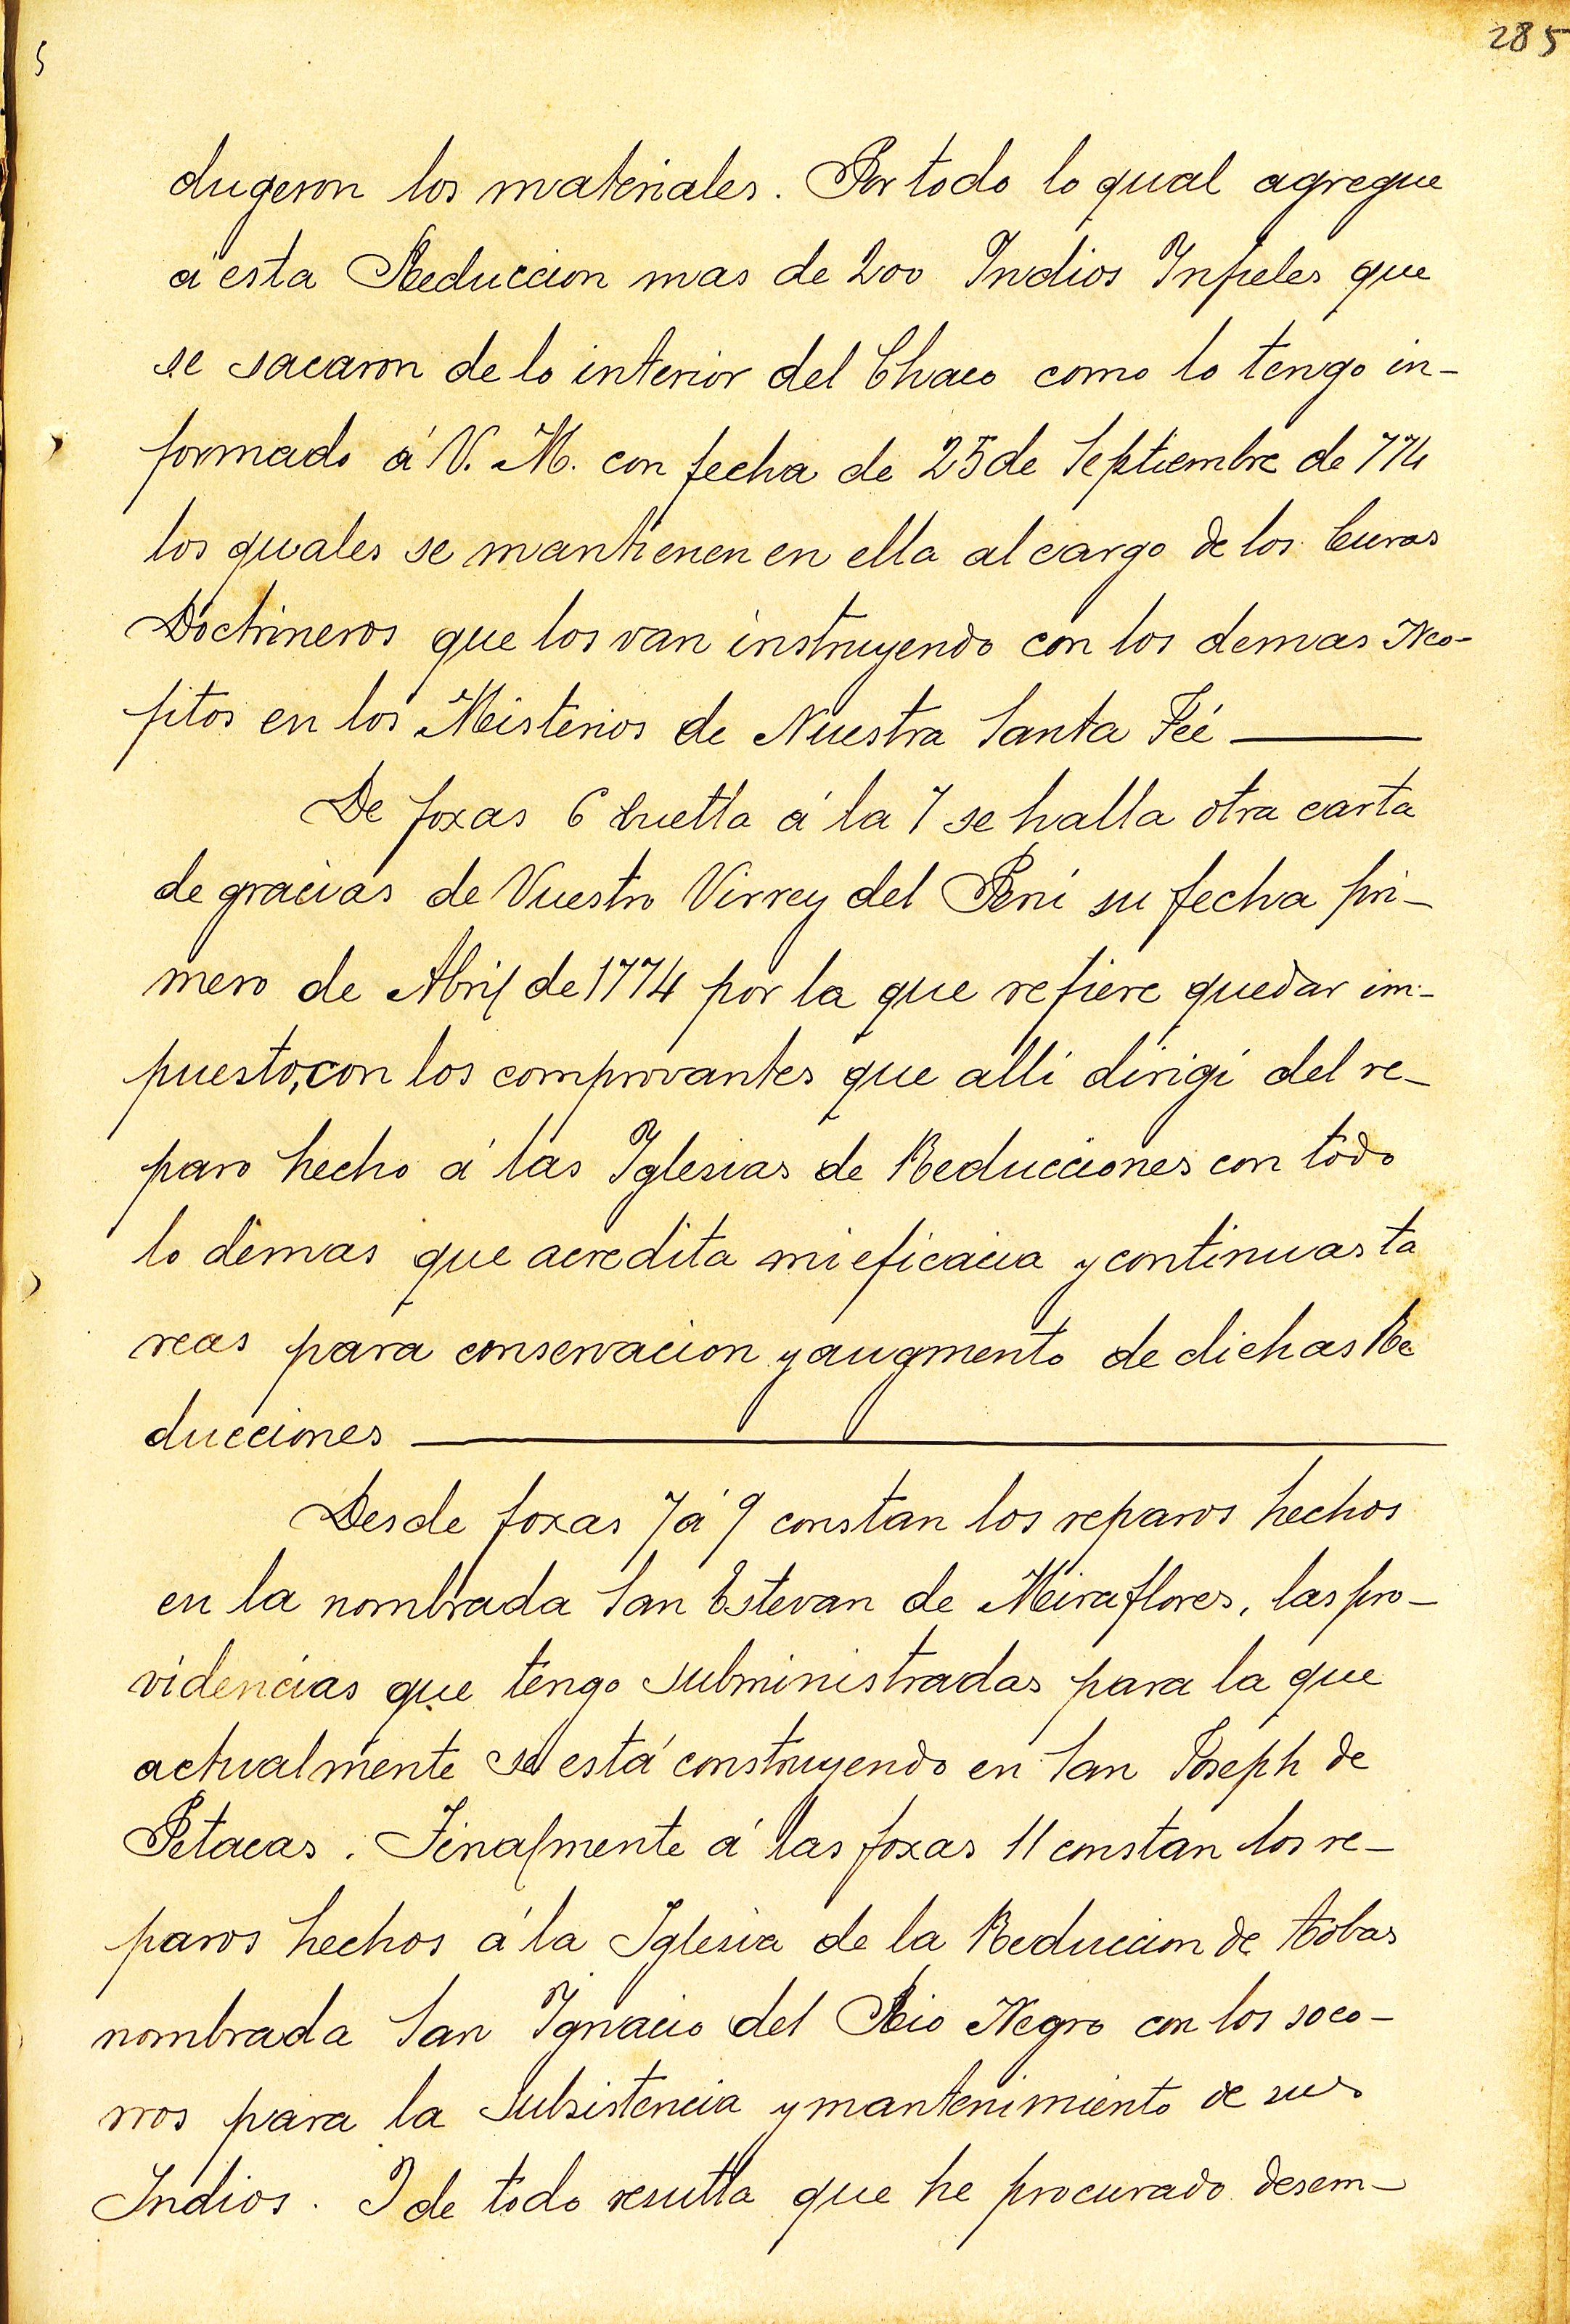 5
285
dugeron los materiales. Por todo lo qual agregue
á esta Reduccion mas de 200 Indios Infieles que
se sacaron de lo interior del Chaco como lo tengo in-
formado á V. M. con fecha de 25 de Septiembre de 774
los quales se mantienen en ella al cargo de los Curas
Doctrineros que los van instruyendo con los demas Neo-
fitos en los Misterios de Nuestra Santa Feé
De foxas 6 buelta á la 7 se halla otra carta
de gracias de Vuestro Virrey del Perú su fecha pri-
mero de Abril de 1774 por la que refiere quedar im-
puesto, con los comprovantes que alli dirigi del re-
paro hecho á las Iglesias de Reducciones con todo
lo demas que acredita mi eficacia y continuas ta
reas para conservacion y augmento de dichas Re
ducciones
Desde foxas 7 á 9 constan los reparos hechos
en la nombrada San Estevan de Miraflores, las pro-
videncias que tengo subministradas para la que
actualmente se está construyendo en San Joseph de
Petacas. Finalmente á las foxas 11 constan los re-
paros hechos á la Iglesia de la Reduccion de Tobas
nombrada San Ignacio del Rio Negro con los soco-
rros para la subsistencia y mantenimiento de sus
Indios. I de todo resulta que he procurado desem-